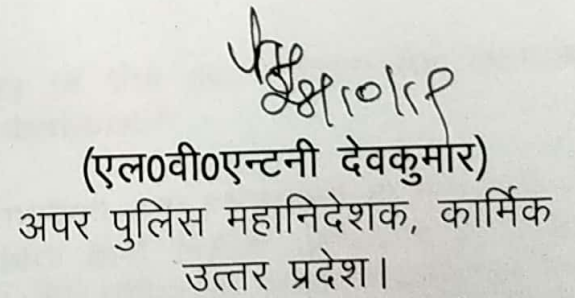 (एल0वी0एन्टनी देवकुमार)
अपर पुलिस महानिदेशक, कार्मिक
उत्तर प्रदेश।